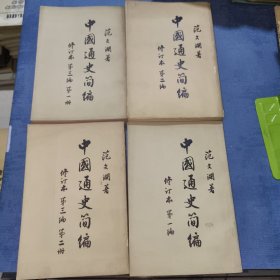 范文澜著
中國通史简编
修订本 第三编 第一册
范文澜著
中國通史简编
修订本 第二编
范文澜著
中國通史简编
修订本 第三编 第二册
范文澜著
中國通史简编
修订本 第一编